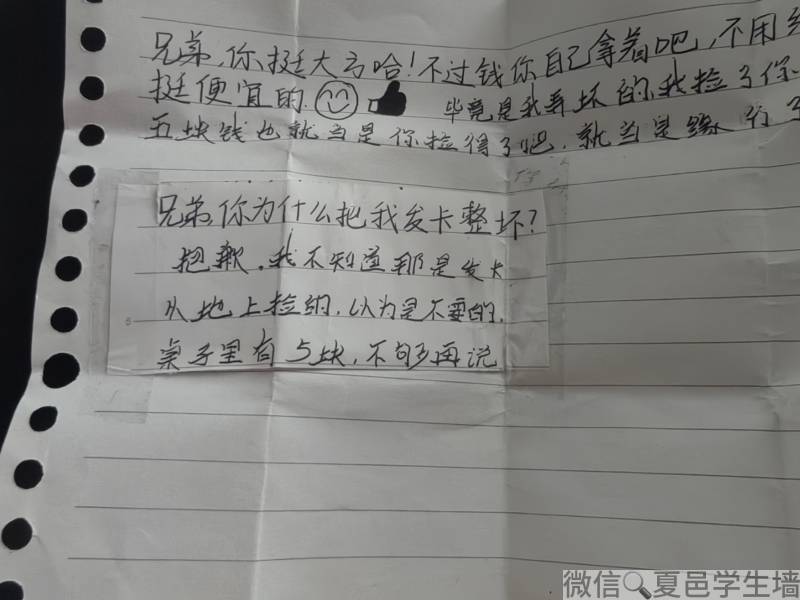 兄弟,你挺大方哈!不过钱你自己拿着吧,不用
挺便宜的 毕竟是我弄坏的,我捡了你
五块钱也就当是你捡得了吧,就当是缘分了
兄弟,你为什么把我发卡整坏?
抱歉,我不知道那是发卡
从地上捡的,以为是不要的,
桌子里有5块,不够再说
微信 夏邑学生墙